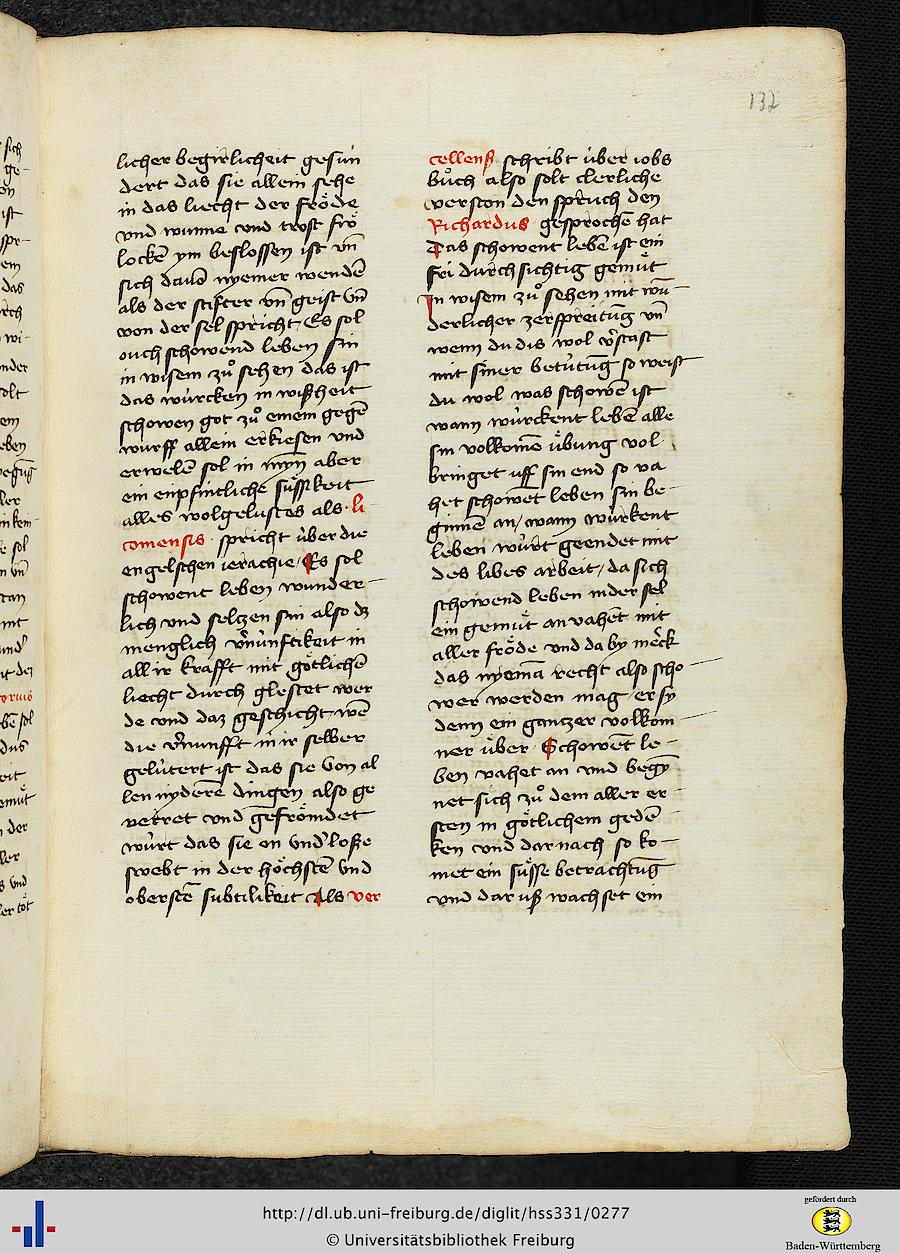 137
licher begirlicheit gesun
dert das sie allein sehe
in das liecht der fröde
vnd wunne vnd trost frö
lockē ym beslossen ist vn̄
sich dauō nyemer wendē
als der stifter vn̄ geist vn̄
von der sel spricht Es sol
ouch schowend leben sin
in wisem zuͦ sehen das ist
das würcken in wißheit
schowen got zuͦ einem gegē
wurff allein erkiesen vnd
erwelē sol in mȳn aber
ein enpfintliche süssikeit
alles wolgelustes als li
comensis spricht über die
engelschen ierachie Es sol
schowent leben wunder
lich vnd seltzen sin also dz
menglich v̄nünftikeit in
all ir krafft mit götlichē
liecht durch glestet wer
de vnd daz geschicht wē
die v̄nunfft in ir selber
gelütert ist das sie von al
len nyderē dingen also ge
verret vnd gefrömdet
würt das sie on vnd'loße
swebt in der höchstē vnd
oberstē subtilikeit Als ver
cellenß schribt über iobs
buͦch also solt clerliche
verston den spruch den
Richardus gesprochē hat
Das schowent lebē ist ein
fri durchsichtig gemüt
In wisem zuͦ sehen mit wū-
derlicher zerspreitūg vn̄
wenn du dis wol v̄stast
mit siner betütūg so weist
du wol was schowē ist
wann würckent lebē alle
sin volkomē übung vol
bringet uff sin end so va
het schowēt leben sin be-
ginnē an / wann würkent
leben würt geendet mit
des libes arbeit / da sich
schowend leben in der sel
ein gemüt an vahēt mit
aller fröde vnd da by mērk
das nyemā recht also scho-
wer werden mag er sy
denn ein gantzer volkom-
ner über Schowēt le-
ben vahet an vnd begȳ
net sich zuͦ dem aller er-
sten in götlichem gedē
ken vnd darnach so ko-
met ein süsse betrachtūg
vnd dar uß wachset ein
http://dl.ub.uni-freiburg.de/diglit/hss331/0277
© Universitätsbibliothek Freiburg
gefördert durch
Baden-Württemberg